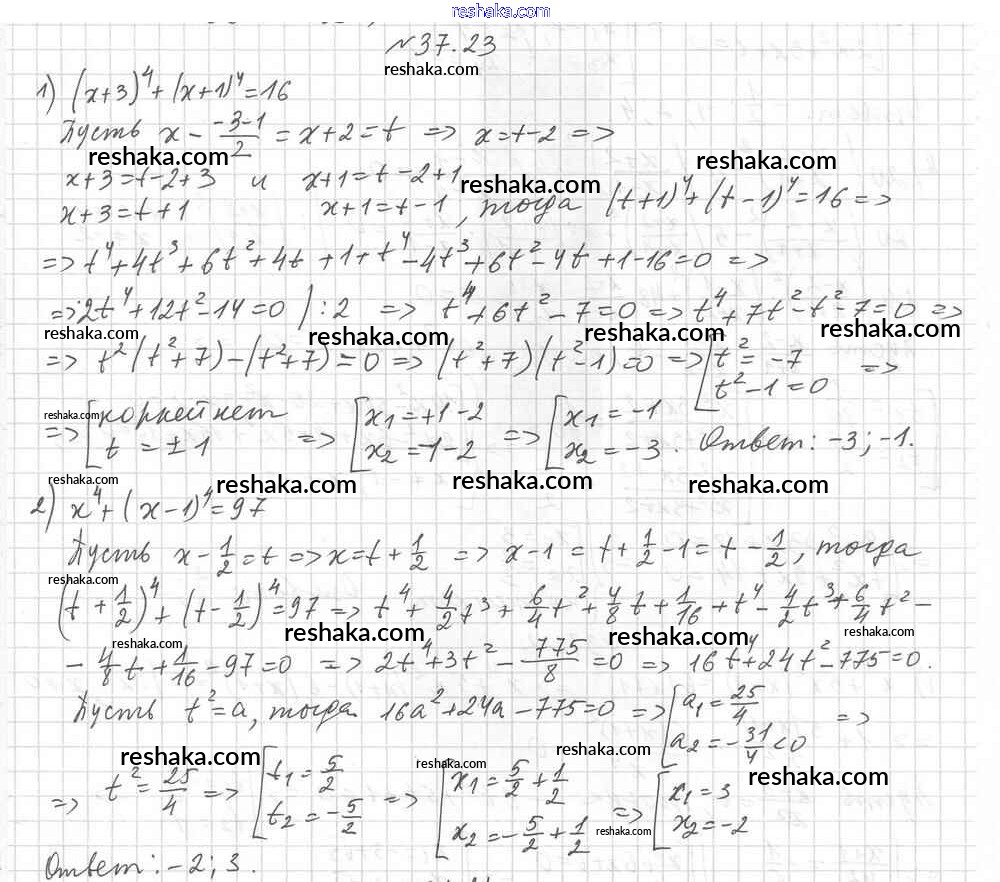 reshaka.com
№37.23
reshaka.com
1) (x+3)⁴+(x+1)⁴=16
Пусть x - (-3-1)/2 = x+2=t => x=t-2 =>
reshaka.com reshaka.com
x+3=t-2+3 и x+1=t-2+1
reshaka.com
x+3=t+1 x+1=t-1, тогда (t+1)⁴+(t-1)⁴=16 =>
=> t⁴+4t³+6t²+4t+1+t⁴-4t³+6t²-4t+1-16=0 =>
=> 2t⁴+12t²-14=0 /:2 => t⁴+6t²-7=0 => t⁴+7t²-t²-7=0 =>
reshaka.com reshaka.com reshaka.com reshaka.com
=> t²(t²+7)-(t²+7)=0 => (t²+7)(t²-1)=0 => [t²=-7
t²-1=0 =>
reshaka.com
=> [корней нет
t=±1 => [x₁=+1-2
x₂=-1-2 => [x₁=-1
x₂=-3. Ответ: -3; -1.
reshaka.com reshaka.com reshaka.com reshaka.com
2) x⁴+(x-1)⁴=97
Пусть x-1/2=t => x=t+1/2 => x-1=t+1/2-1=t-1/2, тогда
reshaka.com
(t+1/2)⁴+(t-1/2)⁴=97 => t⁴+4/2t³+6/4t²+4/8t+1/16+t⁴-4/2t³+6/4t²-
reshaka.com reshaka.com reshaka.com reshaka.com
-4/8t+1/16-97=0 => 2t⁴+3t²-775/8=0 => 16t⁴+24t²-775=0.
Пусть t²=a, тогда 16a²+24a-775=0 => [a₁=25/4
a₂=-31/4<0 =>
reshaka.com reshaka.com reshaka.com reshaka.com
=> t²=25/4 => [t₁=5/2
t₂=-5/2 => [x₁=5/2+1/2
x₂=-5/2+1/2 => [x₁=3
x₂=-2
reshaka.com reshaka.com
Ответ: -2; 3.